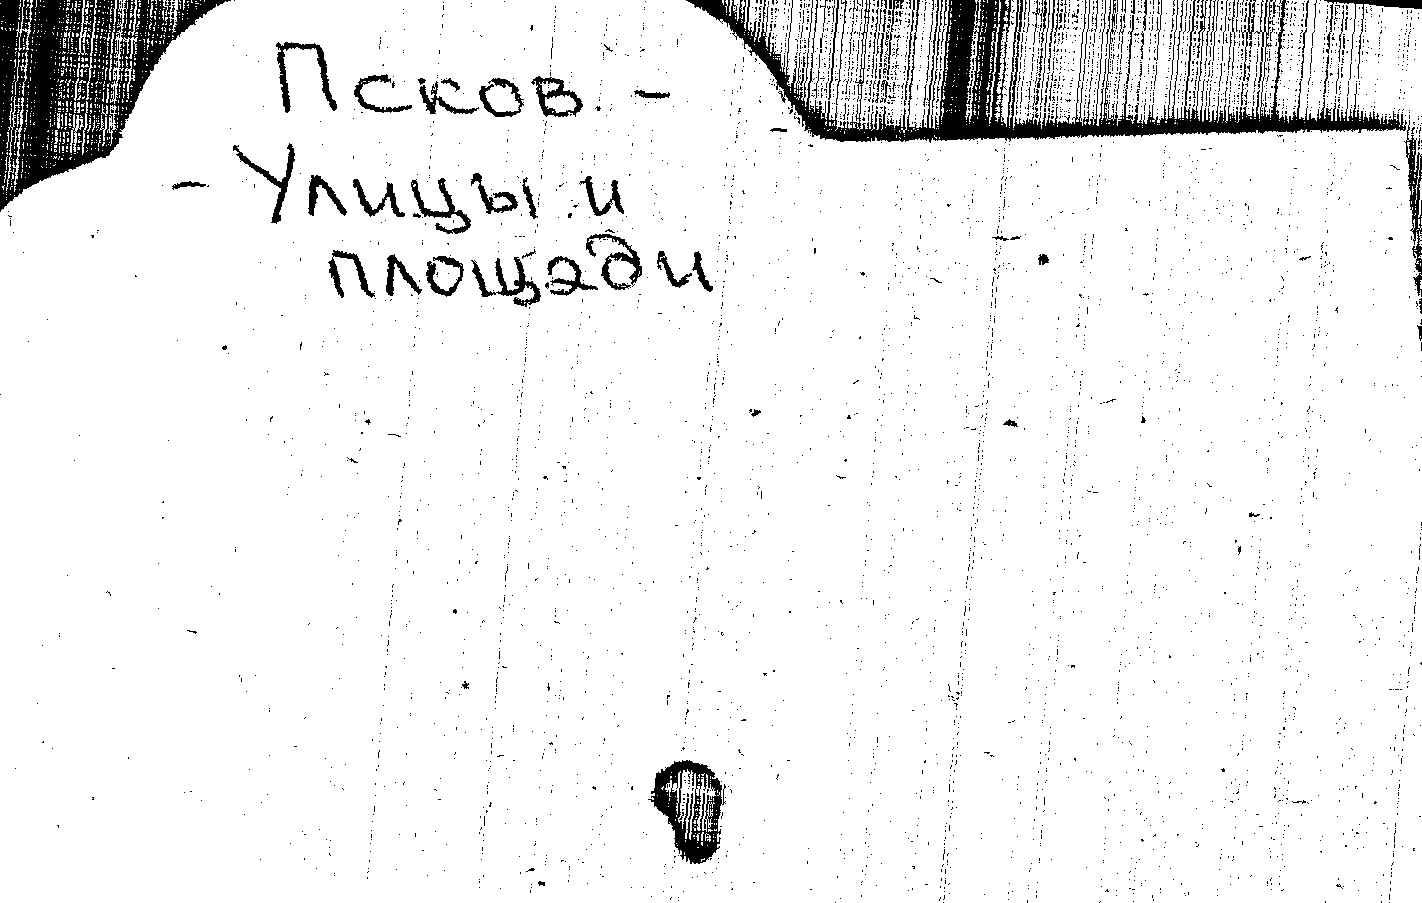 Псков. -
- Улицы и
площади